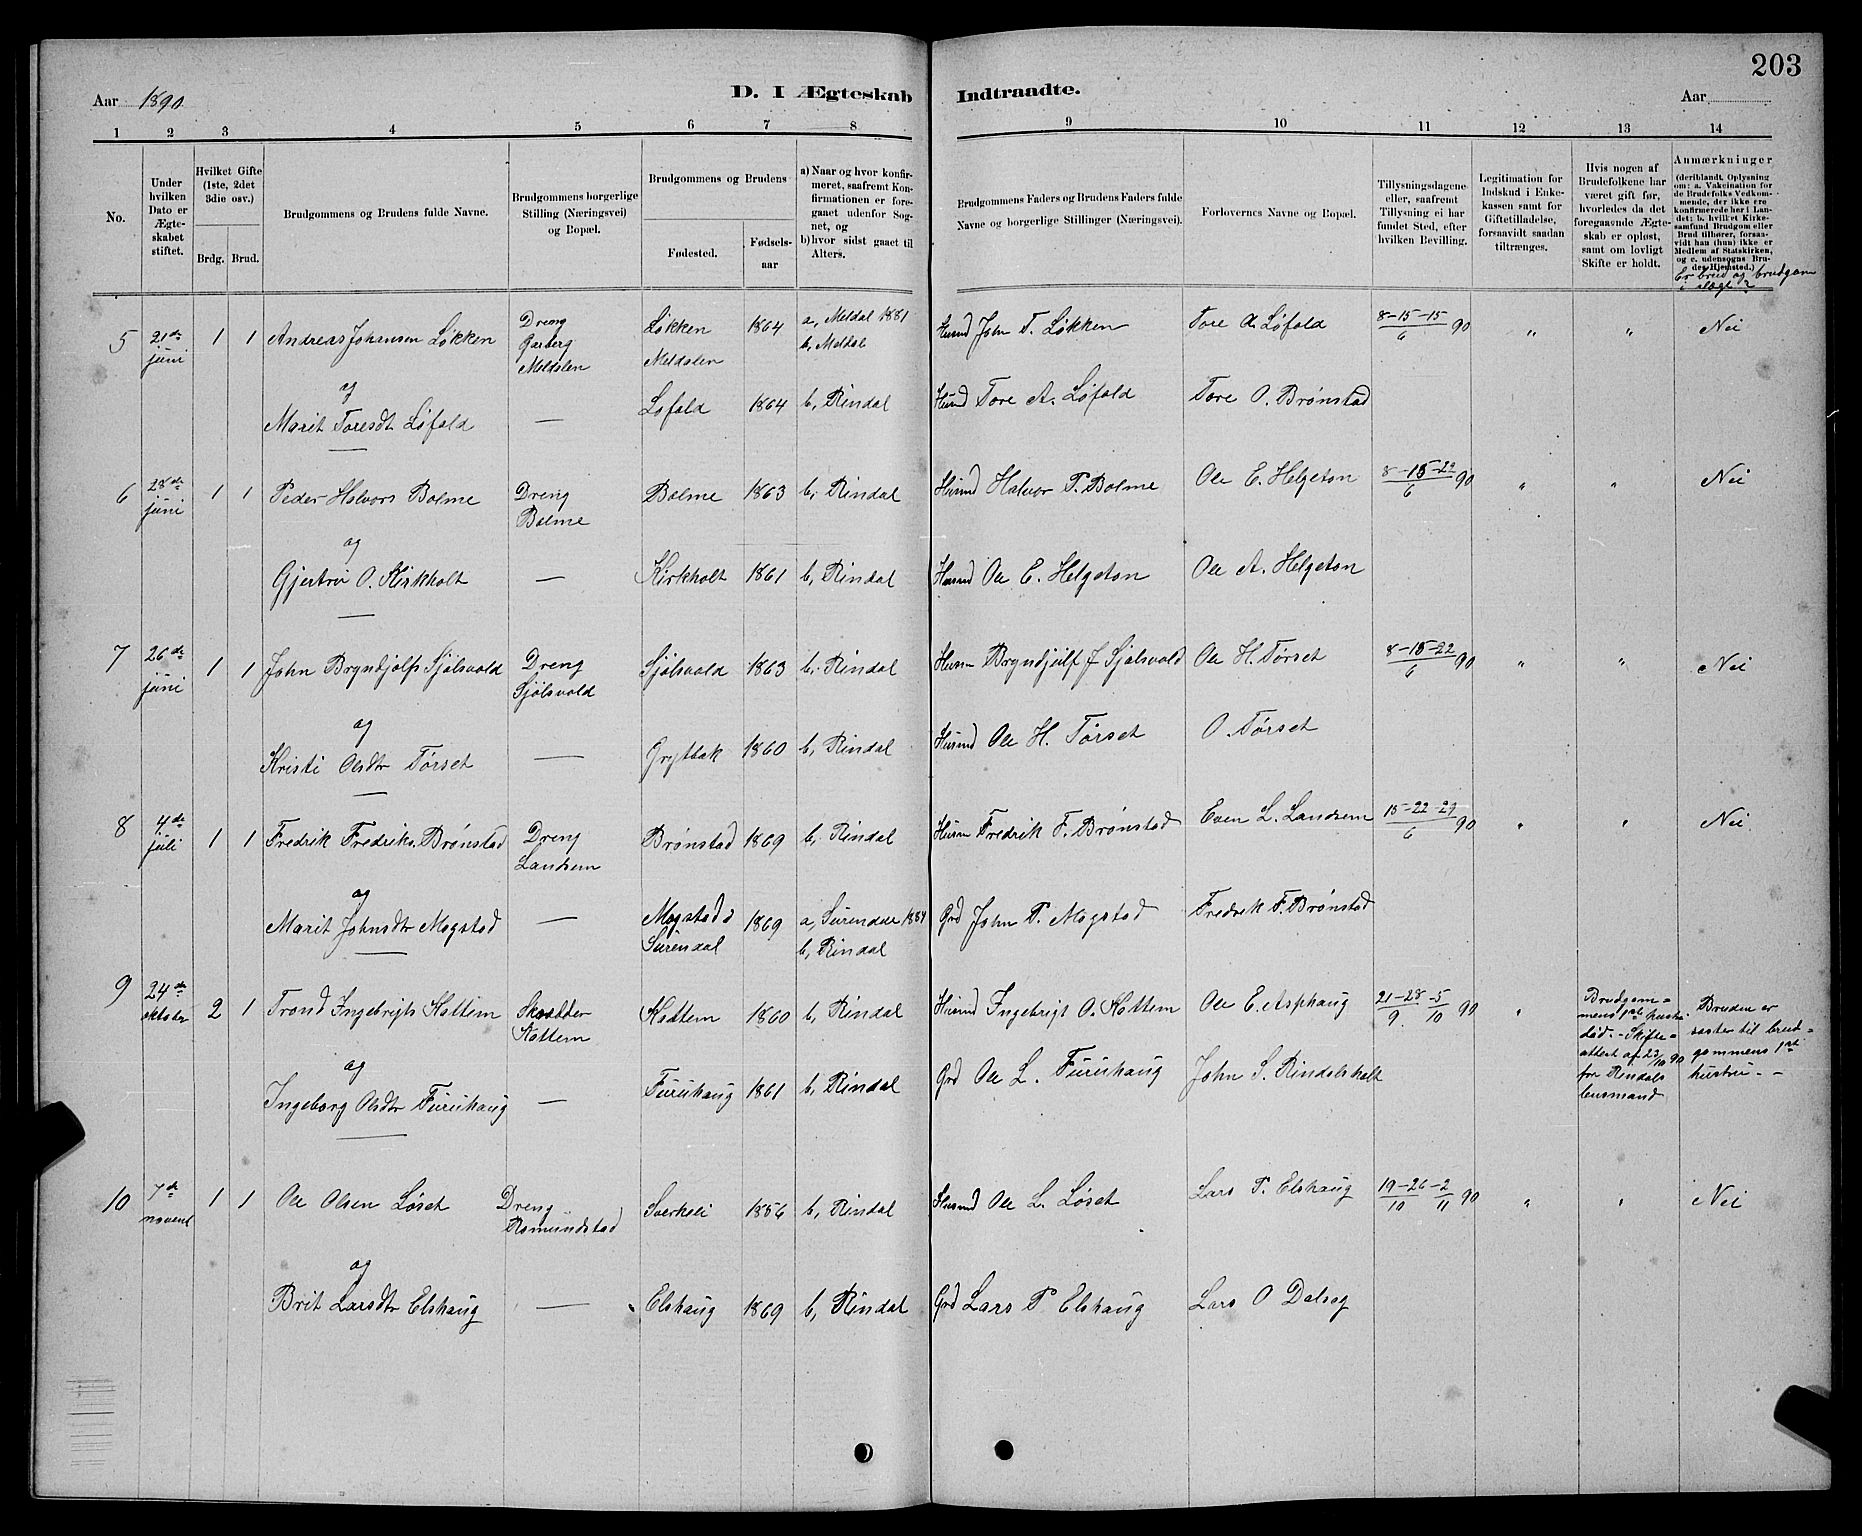 203
Aar 1890
D. I Ægteskab Indtraadte.
Aar
1 2 3 4 5 6 7 8 9 10 11 12 13 14
No.
Under hvilken Dato er Ægte-skabet stiftet.
Hvilket Gifte (1ste, 2det 3die osv.)
Brdg. Brud.
Brudgommens og Brudens fulde Navne.
Brudgommens borgerlige Stilling (Næringsvei) og Bopæl.
Brudgommens og Brudens
Fødested.
Fødsels-aar
a) Naar og hvor konfir-meret, saafremt Kon-firmationen er fore-gaaet udenfor Sog-net, og
b) hvor sidst gaaet til Alters.
Brudgommens Faders og Brudens Faders fulde Navne og borgerlige Stillinger (Næringsvei).
Forlovernes Navne og Bopæl.
Tillysningsdagene eller, saafremt Tillysning ei har fundet Sted, efter hvilken Bevilling.
Legitimation for Indskud i Enke-kassen samt for Giftetilladelse, forsaavidt saadan tiltrænges.
Hvis nogen af Brudefolkene har været gift før, hvorledes da det foregaaende Ægte-skab er opløst, samt om lovligt Skifte er holdt.
Anmærkninger
(deriblandt Oplysning om: a. Vakcination for de Brudefolks Vedkom-mende, der ikke ere konfirmerede her i Lan-det; b. hvilket Kirke-samfund Brudgom eller Brud tilhører, forsaa-vidt han (hun) ikke er Medlem af Statskirken, og c. udensogns Bru-des Hjemsted.)
Er brud og brudgom i slægt?
5 21de juni 1 1 Andreas Johansen Løkken Dreng Garberg Meldalen Løkken Meldalen 1864 a, Meldal 1881 b, Meldal Husmd John T. Løkken Tore A. Løfald 8-15-15/6 90 " " Nei
og
Marit Toresdt Løfald — Løfald 1864 b, Rindal Husmd Tore A. Løfald Tore O. Brønstad
6 28de juni 1 1 Peder Halvors Bolme Dreng Bolme Bolme 1863 b, Rindal Husmd Halvor P. Bolme Ole E. Helgeton 8-15-22/6 90 " " Nei
og
Gjertrø O. Kirkholt — Kirkholt 1861 b, Rindal Husmd Ole E. Helgeton Ole A. Helgeton
7 26de juni 1 1 John Bryndjolfs Sjølsvold Dreng Sjølsvold Sjølsvold 1863 b, Rindal Husm Bryndjulf J Sjølsvold Ole H. Tørset 8-15-22/6 90 " " Nei
og
Kristi Olsdtr Tørset — Gryttbak 1860 b, Rindal Husmd Ole H. Tørset O. Tørset
8 4de juli 1 1 Fredrik Fredriks. Brønstad Dreng Landsem Brønstad 1869 b, Rindal Husm Fredrik F. Brønstad Even L. Landsem 15-22-29/6 90 " " Nei
og
Marit Johnsdtr Mogstad — Mogstad i Surendal 1869 a, Surendal 1884 b, Rindal Grd John P. Mogstad Fredrik F. Brønstad
9 24de oktober 2 1 Trond Ingebrigts Kattem Skrædder Kattem Kattem 1860 b, Rindal Husmd Ingebrigt O. Kattem Ole E. Asphaug 21-28/9 -5/10 90 " Brudgom=mens 1ste hustru død. - Skifte=attest af 23/10 90 fra Rindals lensmand Bruden er søster til brud=gommens 1ste hustru. -
og
Ingeborg Olsdtr Furuhaug — Furuhaug 1861 b, Rindal Grd Ole L. Furuhaug John S. Rindalsholt
10 7de novem 1 1 Ole Olsen Løset Dreng Romundstad Sverkeli 1856 b, Rindal Husmd Ole L. Løset Lars P. Elshaug 19-26/10 -2/11 90 " " Nei
og
Brit Larsdtr Elshaug — Elshaug 1869 b, Rindal Grd Lars P Elshaug Lars O Dalseg